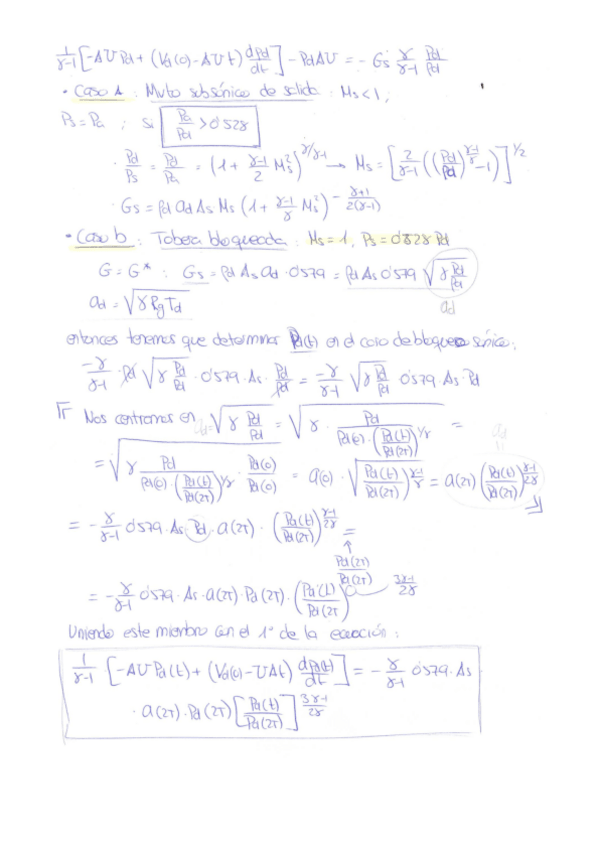 1/(γ-1) [-AU Pd + (Vd(0) - AUt) dPd/dt] - PdAU = - Gs γ/(γ-1) Pd/ρd
• Caso A : Mvto subsónico de salida : Ms<1;
Ps = Pa ; si Pa/Pd > 0'528
· Pd/Ps = Pd/Pa = (1 + (γ-1)/2 Ms²)^(γ/γ-1) → Ms = [2/(γ-1) ((Pd/Pd)^((γ-1)/γ) - 1)]^(1/2)
· Gs = ρd ad As Ms (1 + (γ-1)/γ Ms²)^(-(γ+1)/(2(γ-1)))
• Caso b : Tobera bloqueada : Ms = 1, Ps = 0'528 Pd
G = G* : Gs = ρd As ad · 0'579 = ρd As 0'579 √(γ Pd/ρd)
ad = √(γ Rg Td)
ad
entonces tenemos que determinar Pd(t) en el caso de bloqueo sónico:
-γ/(γ-1) · ρd √(γ Pd/ρd) · 0'579 · As · Pd/ρd = -γ/(γ-1) √(γ Pd/ρd) 0'579 As · Pd
Nos centramos en ad = √(γ Pd/ρd) = √(γ · Pd/(ρd(0) · (Pd(t)/Pd(2τ))^(1/γ))) =
= √(γ Pd/(ρd(0) · (Pd(t)/Pd(2τ))^(1/γ)) · Pd(0)/Pd(0)) = a(0) · √((Pd(t)/Pd(2τ))^((γ-1)/γ)) = a(2τ) (Pd(t)/Pd(2τ))^((γ-1)/2γ)
ad
= - γ/(γ-1) 0'579 · As · Pd · a(2τ) · (Pd(t)/Pd(2τ))^((γ-1)/2γ) =
↑
Pd(2τ)/Pd(2τ)
= - γ/(γ-1) 0'579 · As · a(2τ) · Pd(2τ) · (Pd(t)/Pd(2τ))^((3γ-1)/2γ)
Uniendo este miembro con el 1º de la ecuación:
1/(γ-1) [-AU Pd(t) + (Vd(0) - UAt) dPd(t)/dt] = - γ/(γ-1) 0'579 · As
· a(2τ) · Pd(2τ) [Pd(t)/Pd(2τ)]^((3γ-1)/2γ)